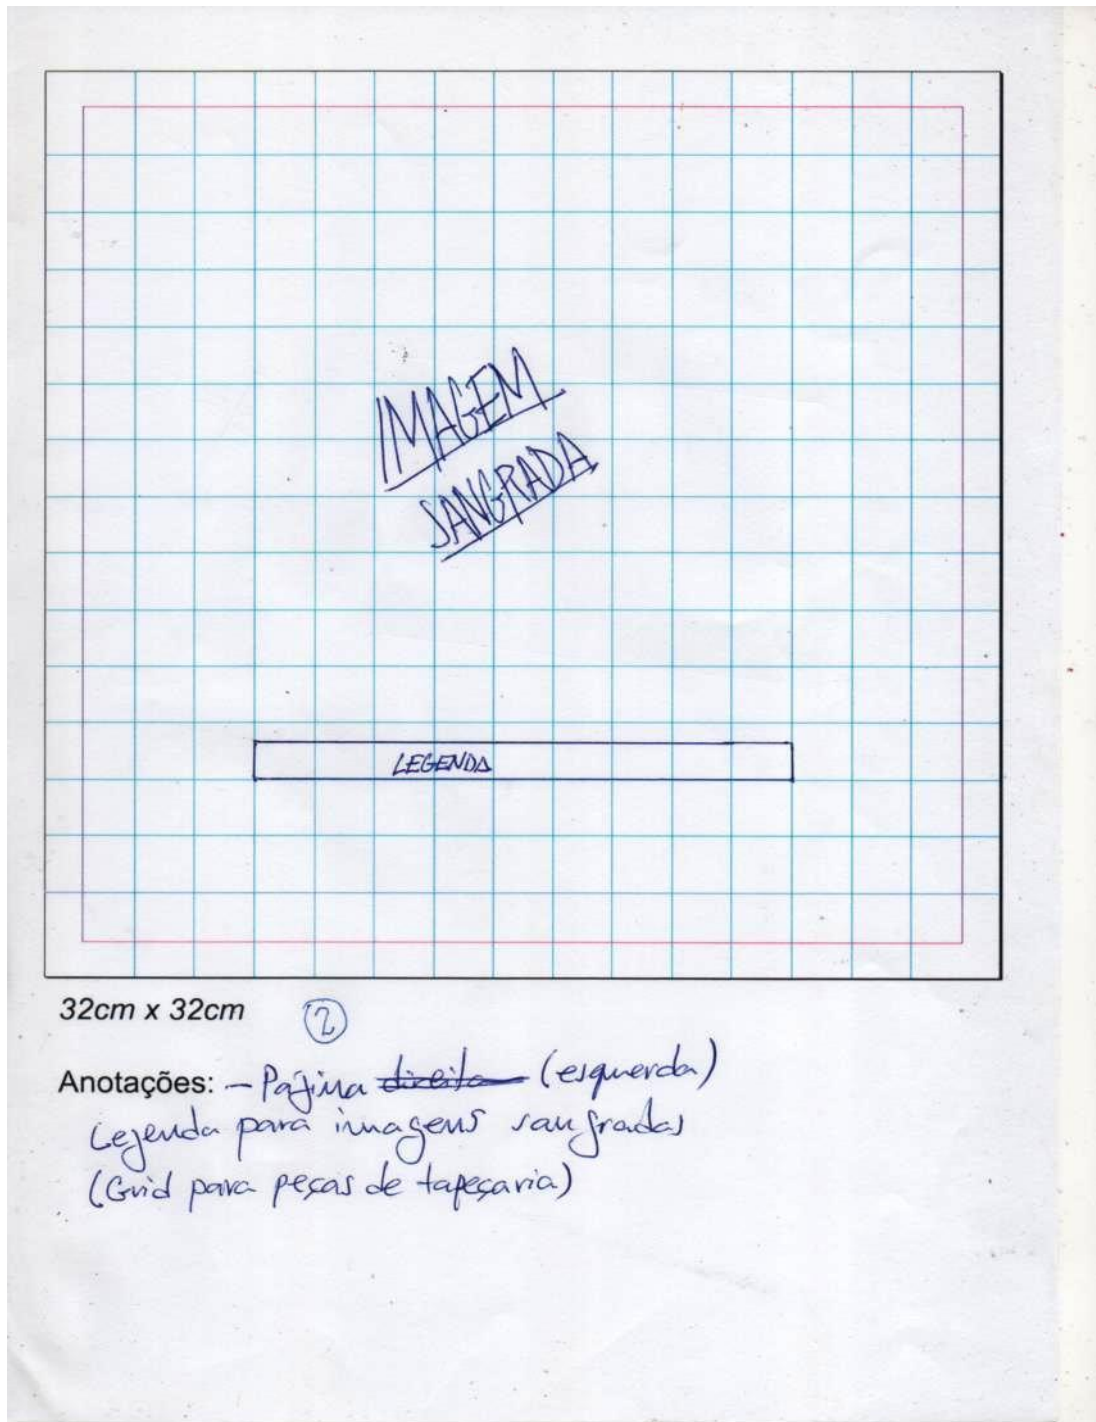 IMAGEM
SANGRADA
LEGENDA
32cm x 32cm
2
Anotações: - Página direita (esquerda)
Legenda para imagens sangradas
(Grid para peças de tapeçaria)